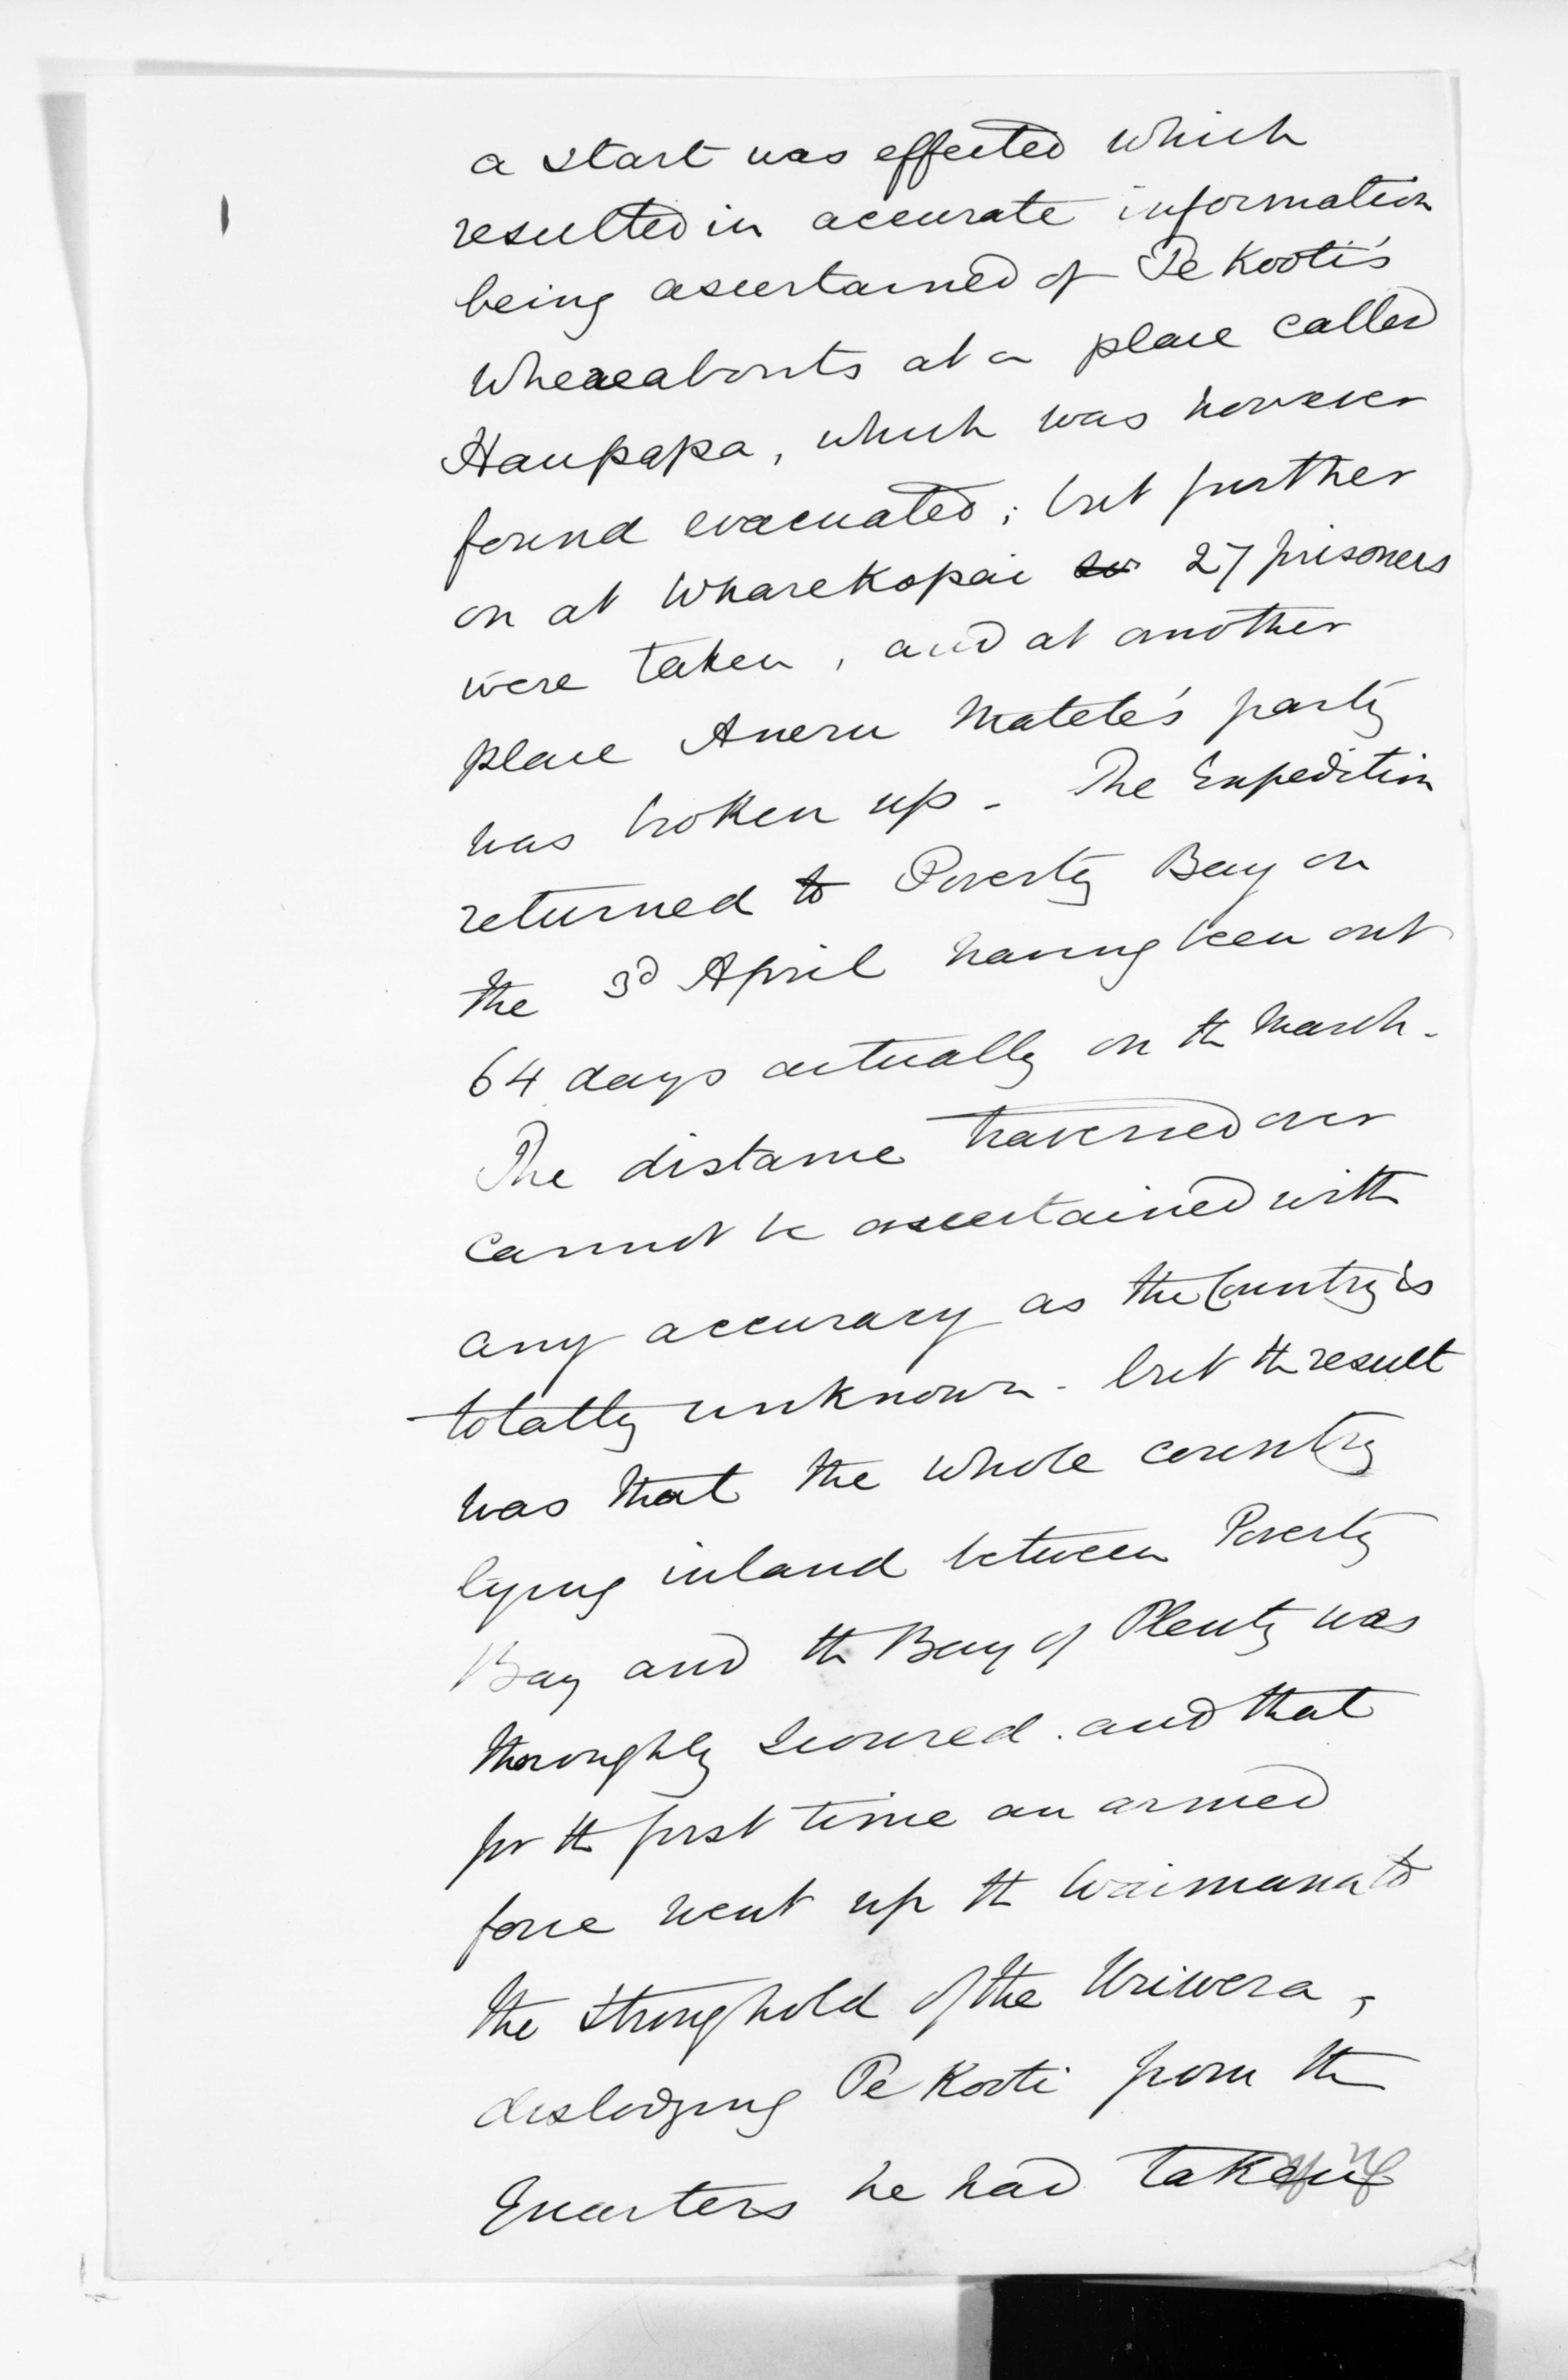 a start was effected which
resulted in accurate information
being ascertained of Te Kooti's
whereabouts at a place called
Haupapa, which was however
found evacuated; but further
on at Wharekopai 27 prisoners
were taken, and at another
place Aneru Matete's party
was broken up - The Expedition
returned to Poverty Bay on
the 3d April having been out
64 days actually on the march -
The distance traversed over
cannot be ascertained with
any accuracy as the Country is
totally unknown - but the result
was that the whole country
lying inland between Poverty
Bay and the Bay of Plenty was
thoroughly scoured. and that
for the first time an armed
force went up the Waimana to
the stronghold of the Uriwera,
dislodging Te Kooti from the
Quarters he had taken up